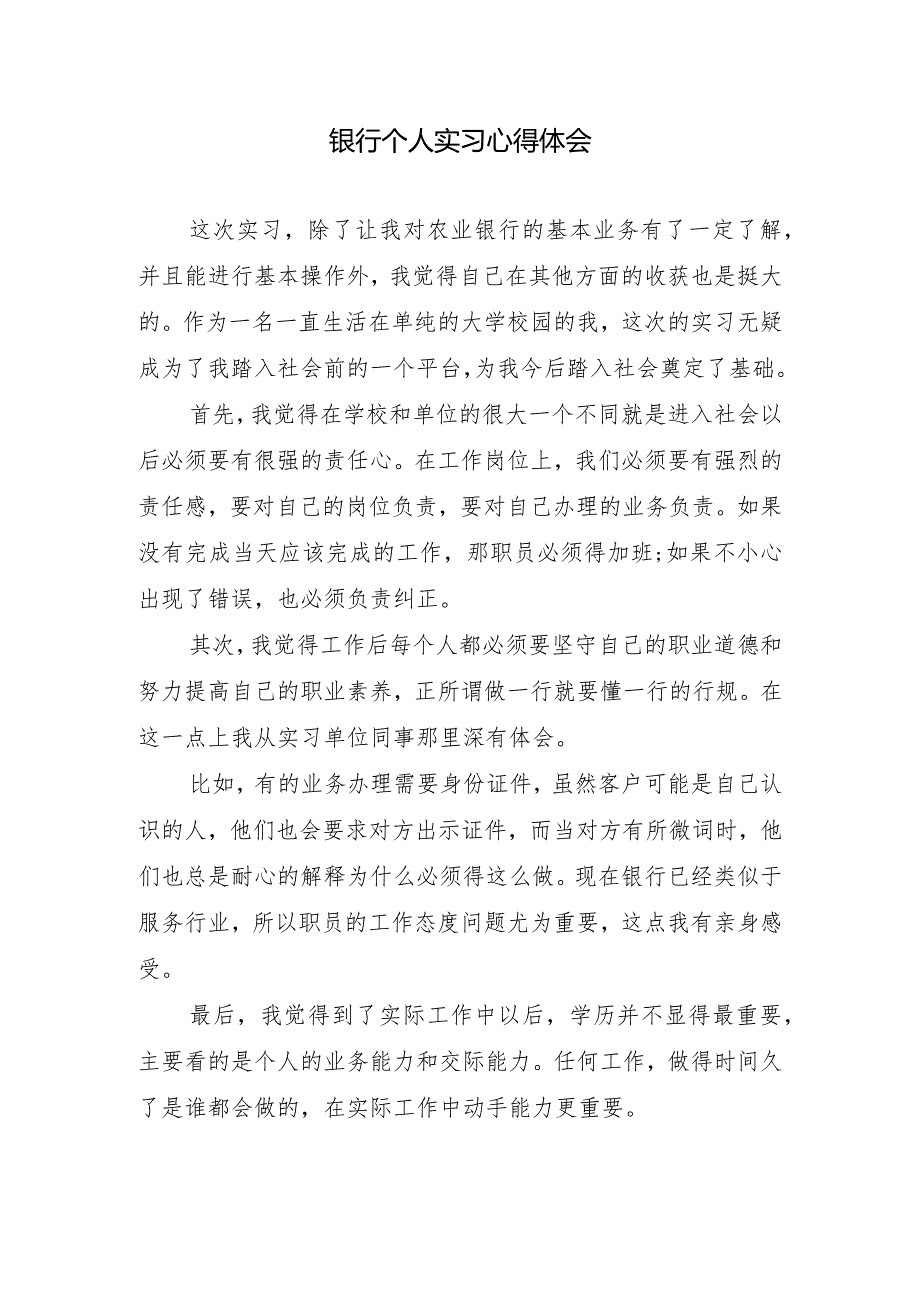 银行个人实习心得体会
这次实习，除了让我对农业银行的基本业务有了一定了解，
并且能进行基本操作外，我觉得自己在其他方面的收获也是挺大
的。作为一名一直生活在单纯的大学校园的我，这次的实习无疑
成为了我踏入社会前的一个平台，为我今后踏入社会奠定了基础。
首先，我觉得在学校和单位的很大一个不同就是进入社会以
后必须要有很强的责任心。在工作岗位上，我们必须要有强烈的
责任感，要对自己的岗位负责，要对自己办理的业务负责。如果
没有完成当天应该完成的工作，那职员必须得加班;如果不小心
出现了错误，也必须负责纠正。
其次，我觉得工作后每个人都必须要坚守自己的职业道德和
努力提高自己的职业素养，正所谓做一行就要懂一行的行规。在
这一点上我从实习单位同事那里深有体会。
比如，有的业务办理需要身份证件，虽然客户可能是自己认
识的人，他们也会要求对方出示证件，而当对方有所微词时，他
们也总是耐心的解释为什么必须得这么做。现在银行已经类似于
服务行业，所以职员的工作态度问题尤为重要，这点我有亲身感
受。
最后，我觉得到了实际工作中以后，学历并不显得最重要，
主要看的是个人的业务能力和交际能力。任何工作，做得时间久
了是谁都会做的，在实际工作中动手能力更重要。